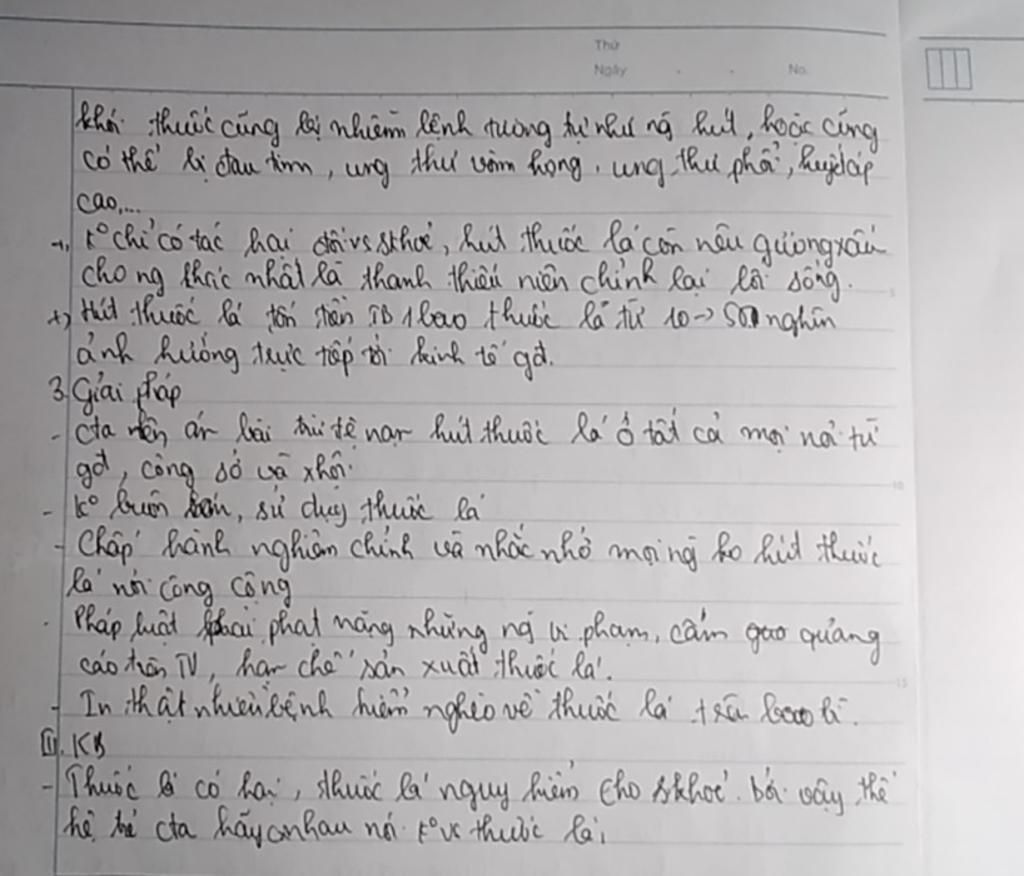 Thứ
Ngày . . No.
khói thuốc cũng bị nhiễm bệnh tương tự như ng hút, hoặc cũng
có thể bị đau tim, ung thư vòm họng, ung thư phổi, huyết áp
cao,...
+, K° chỉ có tác hại đối vs skhoẻ, hút thuốc lá còn nêu gương xấu
cho ng khác nhất là thanh thiếu niên chỉnh lại lối sống.
+, Hút thuốc lá tốn tiền TB 1 bao thuốc lá từ 10 -> 50 nghìn
ảnh hưởng trực tiếp tới kinh tế gđ.
3, Giải pháp
- Cta nên bài trừ tệ nạn hút thuốc lá ở tất cả mọi nơi từ
gđ, công sở và xhội.
- K° buôn bán, sử dụng thuốc lá
- Chấp hành nghiêm chỉnh và nhắc nhở mọi ng ko hút thuốc
lá nơi công cộng
- Pháp luật phải phạt nặng những ng vi phạm, cấm quảng
cáo trên TV, hạn chế sản xuất thuốc lá.
- In thật nhiều bệnh hiểm nghèo về thuốc lá trên bao bì.
III. KB
- Thuốc lá có hại, thuốc lá nguy hiểm cho skhoẻ. bởi vậy thế
hệ trẻ cta hãy nhau nói k° vs thuốc lá,